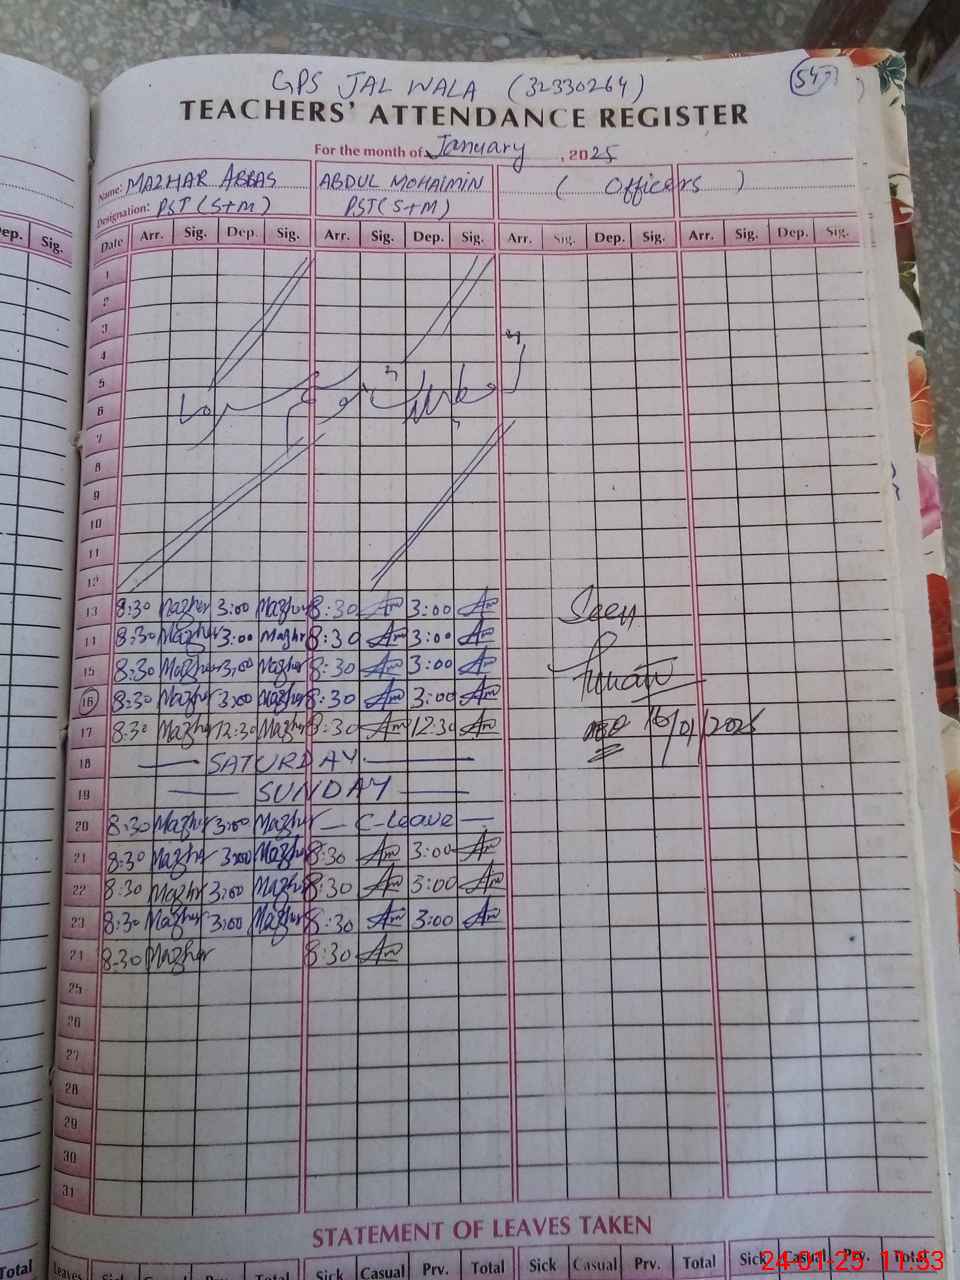 GPS JAL WALA (32330264)
547
TEACHERS' ATTENDANCE REGISTER
For the month of January, 2025
Name: MAZHAR ABBAS ABDUL MOHAIMIN ( Officers )
Designation: PST (S+M) PST (S+M)
ep. Sig. Date Arr. Sig. Dep. Sig. Arr. Sig. Dep. Sig. Arr. Sig. Dep. Sig. Arr. Sig. Dep. Sig.
1
2
3
4
5
6
7
8
9
10
11
12
13 8:30 Mazhar 3:00 Mazhar 8:30 Am 3:00 Am Seen
14 8:30 Mazhar 3:00 Mazhar 8:30 Am 3:00 Am
15 8:30 Mazhar 3:00 Mazhar 8:30 Am 3:00 Am
16 8:30 Mazhar 3:00 Mazhar 8:30 Am 3:00 Am
17 8:30 Mazhar 12:30 Mazhar 8:30 Am 12:30 Am 16/01/2025
18 SATURDAY
19 SUNDAY
20 8:30 Mazhar 3:00 Mazhar C-Leave
21 8:30 Mazhar 3:00 Mazhar 8:30 Am 3:00 Am
22 8:30 Mazhar 3:00 Mazhar 8:30 Am 3:00 Am
23 8:30 Mazhar 3:00 Mazhar 8:30 Am 3:00 Am
24 8:30 Mazhar 8:30 Am
25
26
27
28
29
30
31
STATEMENT OF LEAVES TAKEN
Total Leaves Sick Casual Prv. Total Sick Casual Prv. Total Sick Casual Prv. Total Sick Casual Prv. Total
24-01-25 11:53